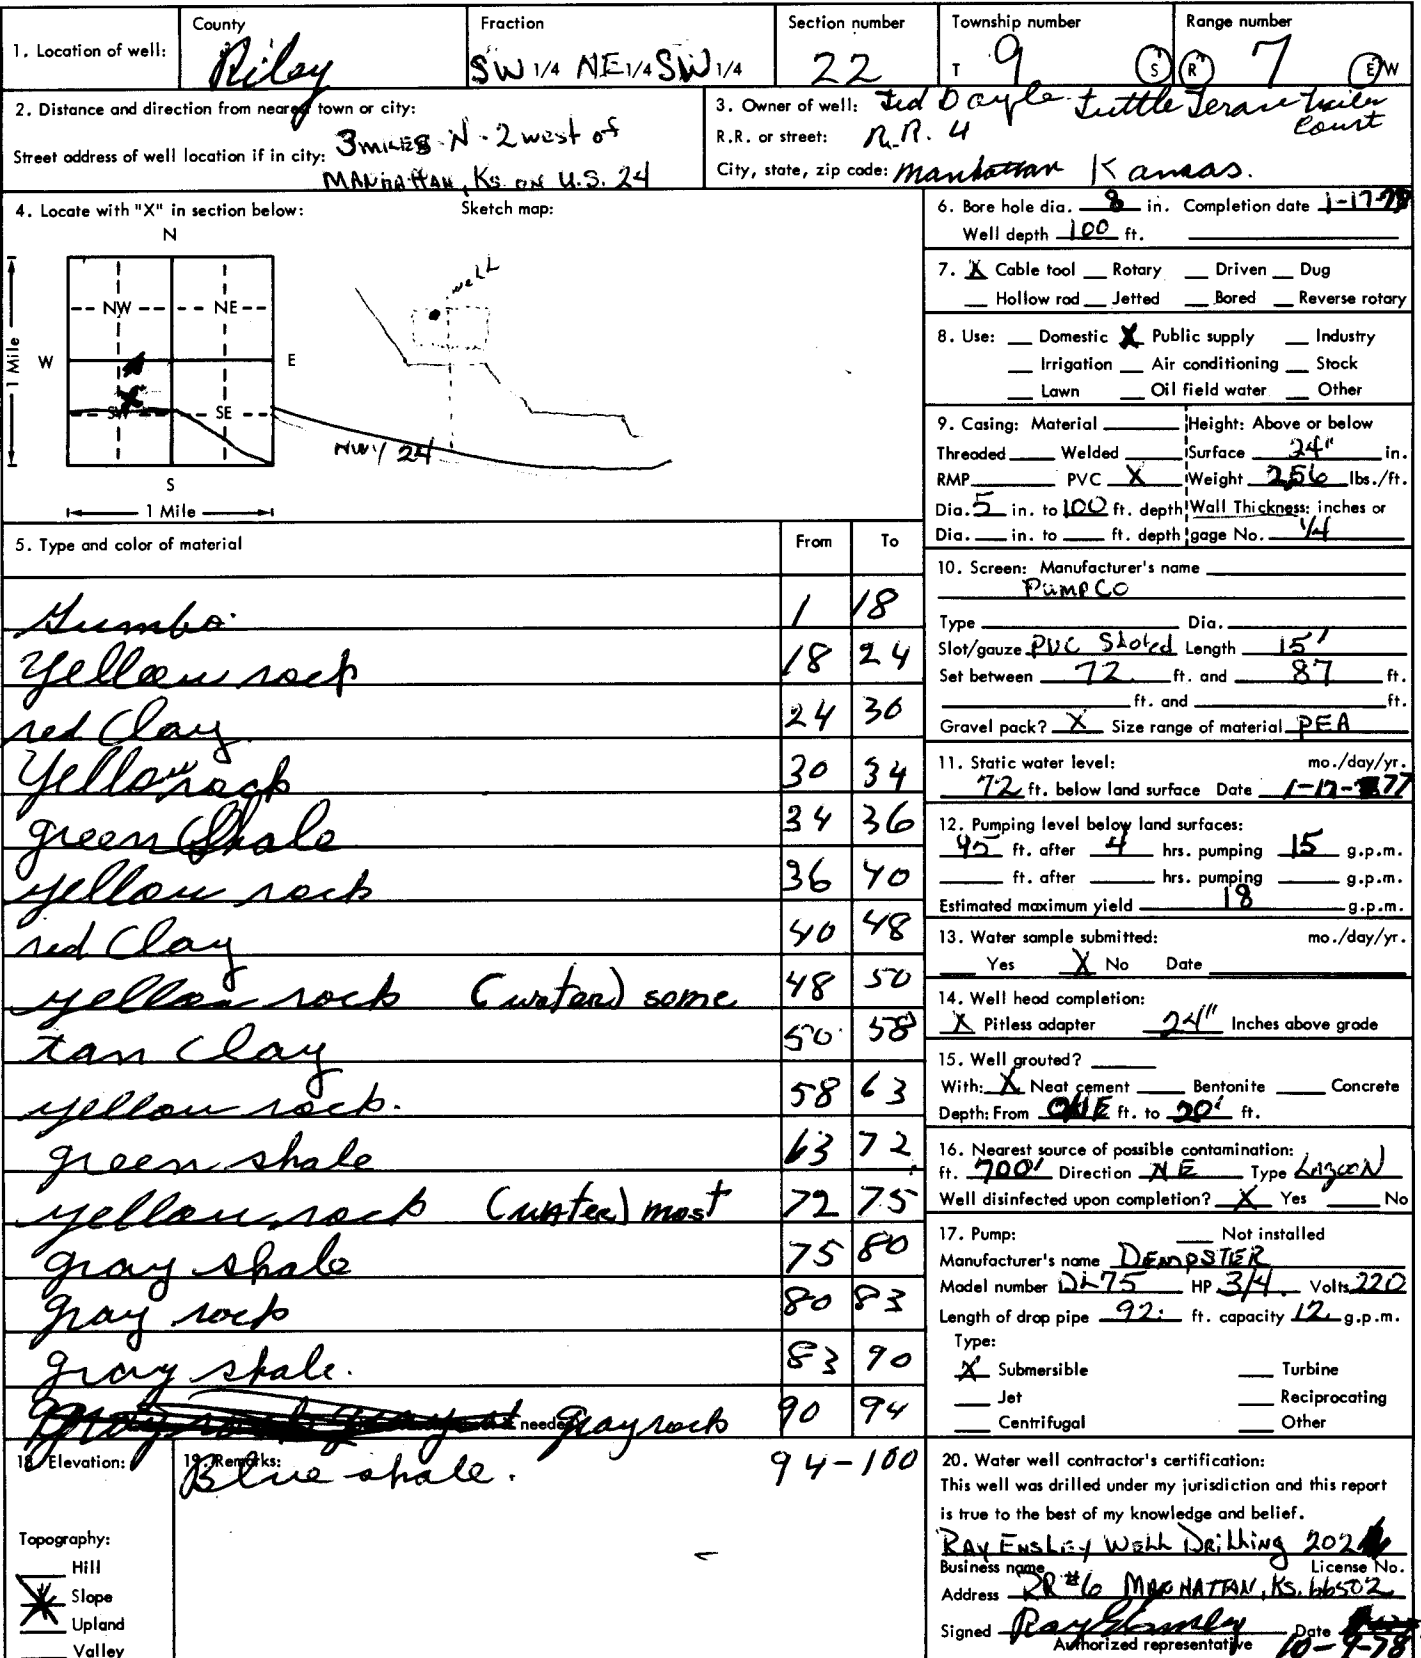 1. Location of well: County Riley Fraction SW 1/4 NE 1/4 SW 1/4 Section number 22 Township number T 9 S Range number R 7 E/W
2. Distance and direction from nearest town or city: 3 miles N - 2 west of
Street address of well location if in city: MANHATTAN, Ks. on U.S. 24
3. Owner of well: Tuttle Terrace Trailer Court
R.R. or street: R.R. 4
City, state, zip code: Manhattan Kansas.
4. Locate with "X" in section below: Sketch map:
N
NW NE
W E
SW SE
S
1 Mile
1 Mile
well
HWY 24
5. Type and color of material From To
Gumbo 1 18
Yellow rock 18 24
red Clay 24 30
Yellow rock 30 34
green Shale 34 36
yellow rock 36 40
red Clay 40 48
yellow rock (water) some 48 50
tan Clay 50 58
yellow rock. 58 63
green shale 63 72
yellow rock (water) most 72 75
gray shale 75 80
gray rock 80 83
gray shale. 83 90
gray rock 90 94
Blue shale. 94-100
6. Bore hole dia. 8 in. Completion date 1-17-78
Well depth 100 ft.
7. X Cable tool Rotary Driven Dug
Hollow rod Jetted Bored Reverse rotary
8. Use: Domestic X Public supply Industry
Irrigation Air conditioning Stock
Lawn Oil field water Other
9. Casing: Material Height: Above or below
Threaded Welded Surface 24" in.
RMP PVC X Weight 256 lbs./ft.
Dia. 5 in. to 100 ft. depth Wall Thickness: inches or
Dia. in. to ft. depth gage No. 1/4
10. Screen: Manufacturer's name
Pump Co
Type Dia.
Slot/gauze PVC Sloted Length 15'
Set between 72 ft. and 87 ft.
ft. and ft.
Gravel pack? X Size range of material PEA
11. Static water level: mo./day/yr.
72 ft. below land surface Date 77
12. Pumping level below land surfaces:
95 ft. after 4 hrs. pumping 15 g.p.m.
ft. after hrs. pumping g.p.m.
Estimated maximum yield 18 g.p.m.
13. Water sample submitted: mo./day/yr.
Yes X No Date
14. Well head completion:
X Pitless adapter 24" Inches above grade
15. Well grouted?
With: X Neat cement Bentonite Concrete
Depth: From ONE ft. to 20' ft.
16. Nearest source of possible contamination:
ft. 700' Direction NE Type Lagoon
Well disinfected upon completion? X Yes No
17. Pump: Not installed
Manufacturer's name DEMPSTER
Model number DL75 HP 3/4 Volts 220
Length of drop pipe 92 ft. capacity 12 g.p.m.
Type:
X Submersible Turbine
Jet Reciprocating
Centrifugal Other
18. Elevation: 19. Remarks:
Topography:
Hill
Slope
Upland
Valley
20. Water well contractor's certification:
This well was drilled under my jurisdiction and this report
is true to the best of my knowledge and belief.
RAY ENSLEY WELL DRILLING 202
Business name License No.
Address RR #6 MANHATTAN, KS. 66502
Signed Ray Ensley Date 10-9-78
Authorized representative